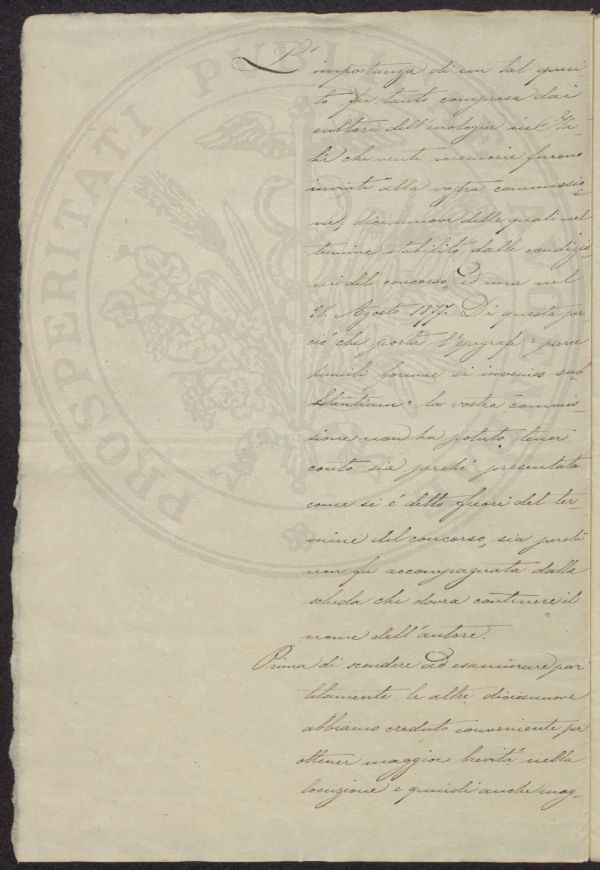 L'importanza di un tal quesi-
to fu tanto compresa dai
cultori dell'enologia in Ita-
lia che venti memorie furono
inviate alla vostra commissio-
ne, diciannove delle quali nel
termine stabilito dalle condizio-
ni del concorso, ed una nel
Agosto 1877. Di questa per
ciò che porta l'epigrafe "
formae si invenies sub-
stantiam" la vostra commis-
sione non ha potuto tener
conto sia perché presentata
come si è detto fuori del ter-
mine del concorso, sia perché
non fu accompagnata dalla
scheda che dovea contenere il
nome dell'autore.
Prima di scendere ad esaminare par
titamente le altre diciannove
abbiamo creduto conveniente per
ottener maggior brevità nella
locuzione e quindi anche mag-
PROSPERITATI PUBLICAE